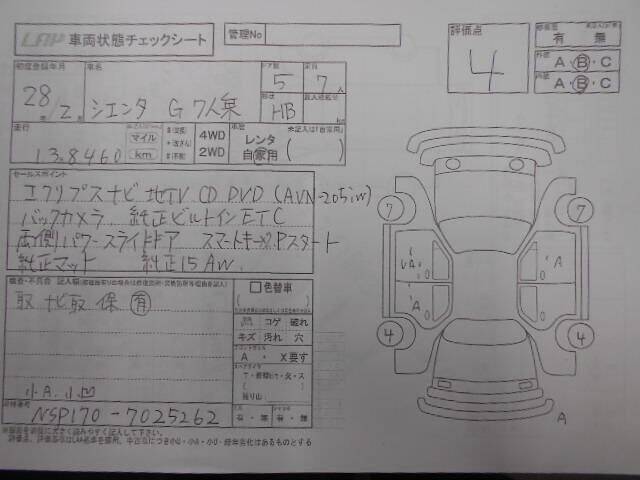 LAP 車両状態チェックシート
管理No
評価点
4
有 無
A・B・C
A・B・C
初度登録年月
車名
ドア数
定員
28年 / 2月
シエンタ G 7人乗
5
7人
HB
走行
13.8460
マイル
km
4WD
2WD
車歴
レンタ
自家用
未記入は「自家用」
セールスポイント
エクリプスナビ 地TV CD DVD (AVN-Z05iw)
バックカメラ 純正ビルトインETC
両側パワースライドドア スマートキー×2 Pスタート
純正マット 純正15AW
取 ナビ取 保 有
小A.小凹
色替車
コゲ 破れ
キズ 汚れ 穴
A ・ X要す
残り山
有・無 有・無
NSP170-7025262
7 7
A A
A
4 4
A